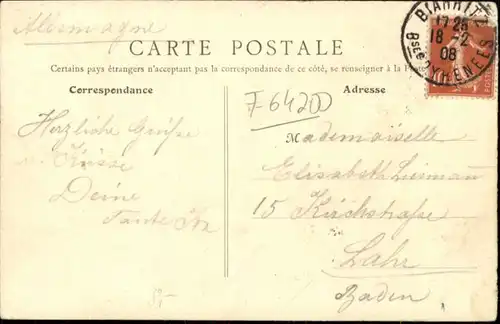 Allemagne
BIARRITZ
17 25
18 -2
08
Bses PYRENEES
CARTE POSTALE
Certains pays étrangers n'acceptant pas la correspondance de ce côté, se renseigner à la
Correspondance
Adresse
F 6420
Herzliche Grüße
u. Küsse
Deine
Tante
Mademoiselle
Elisabeth
15 Kirchstraße
Lahr
Baden